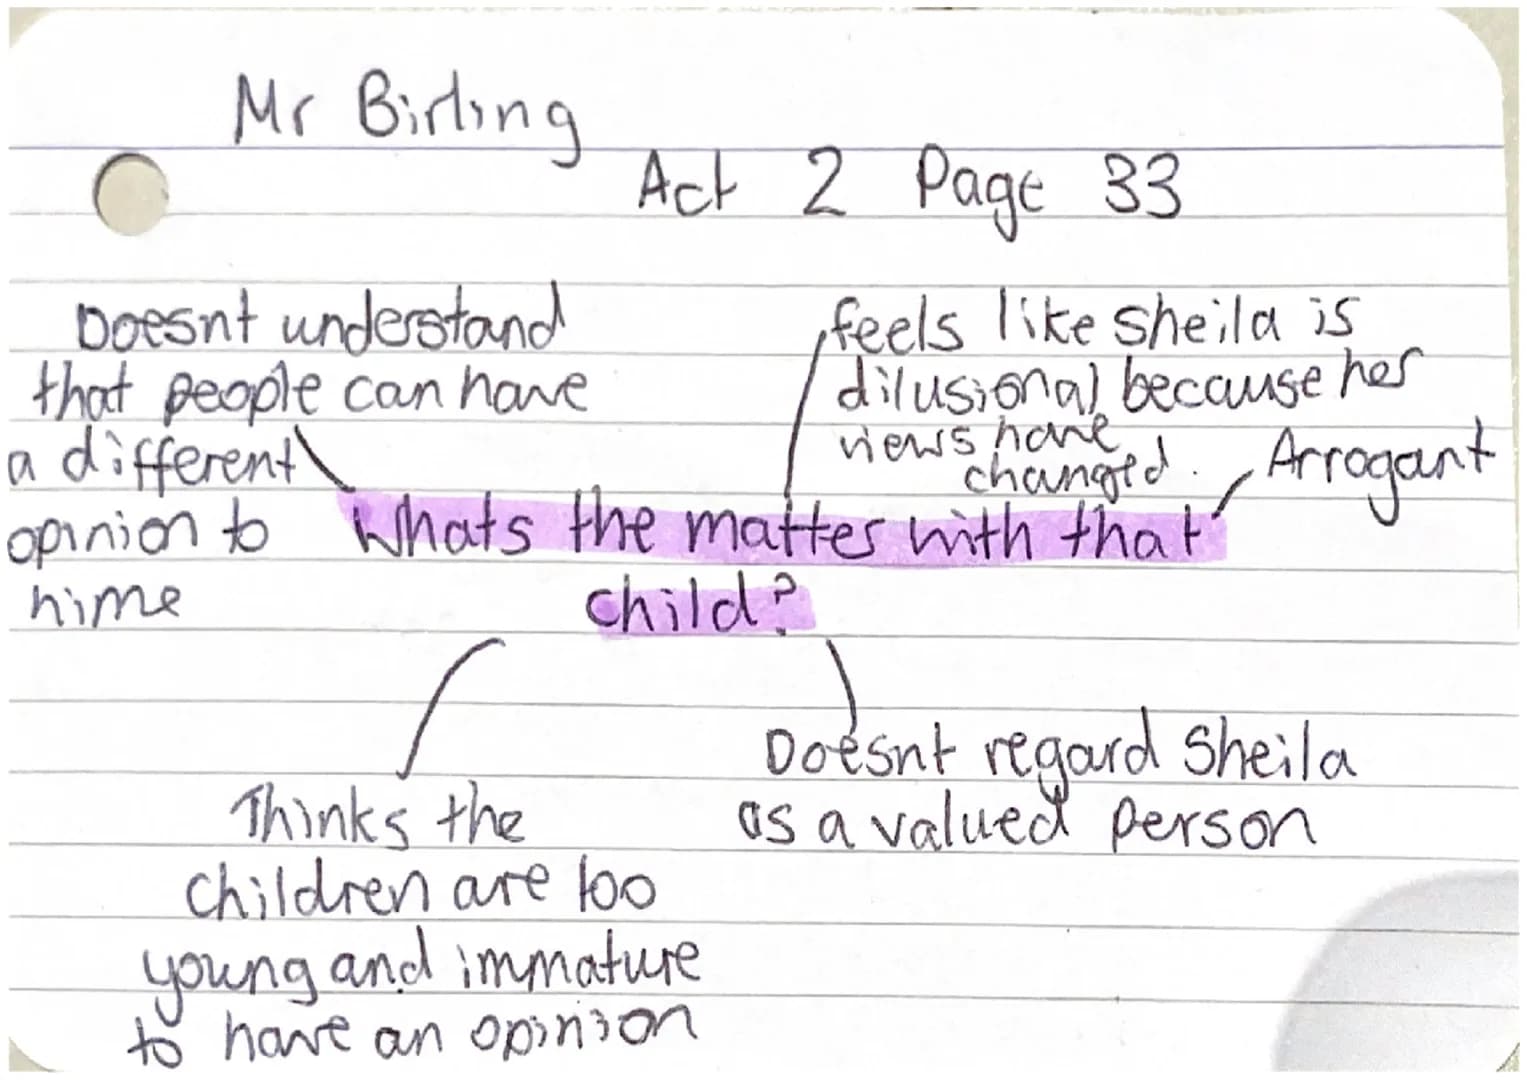 Mr Birling
Act 2 Page 33
Doesnt understand
that people can have
a different
opinion to
hime
feels like sheila is
dilusional because her
views have
changed.
Arrogant
Whats the matter with that
child?
Thinks the
children are too
young and immature
to have an opinion
Doesnt regard Sheila
as a valued person